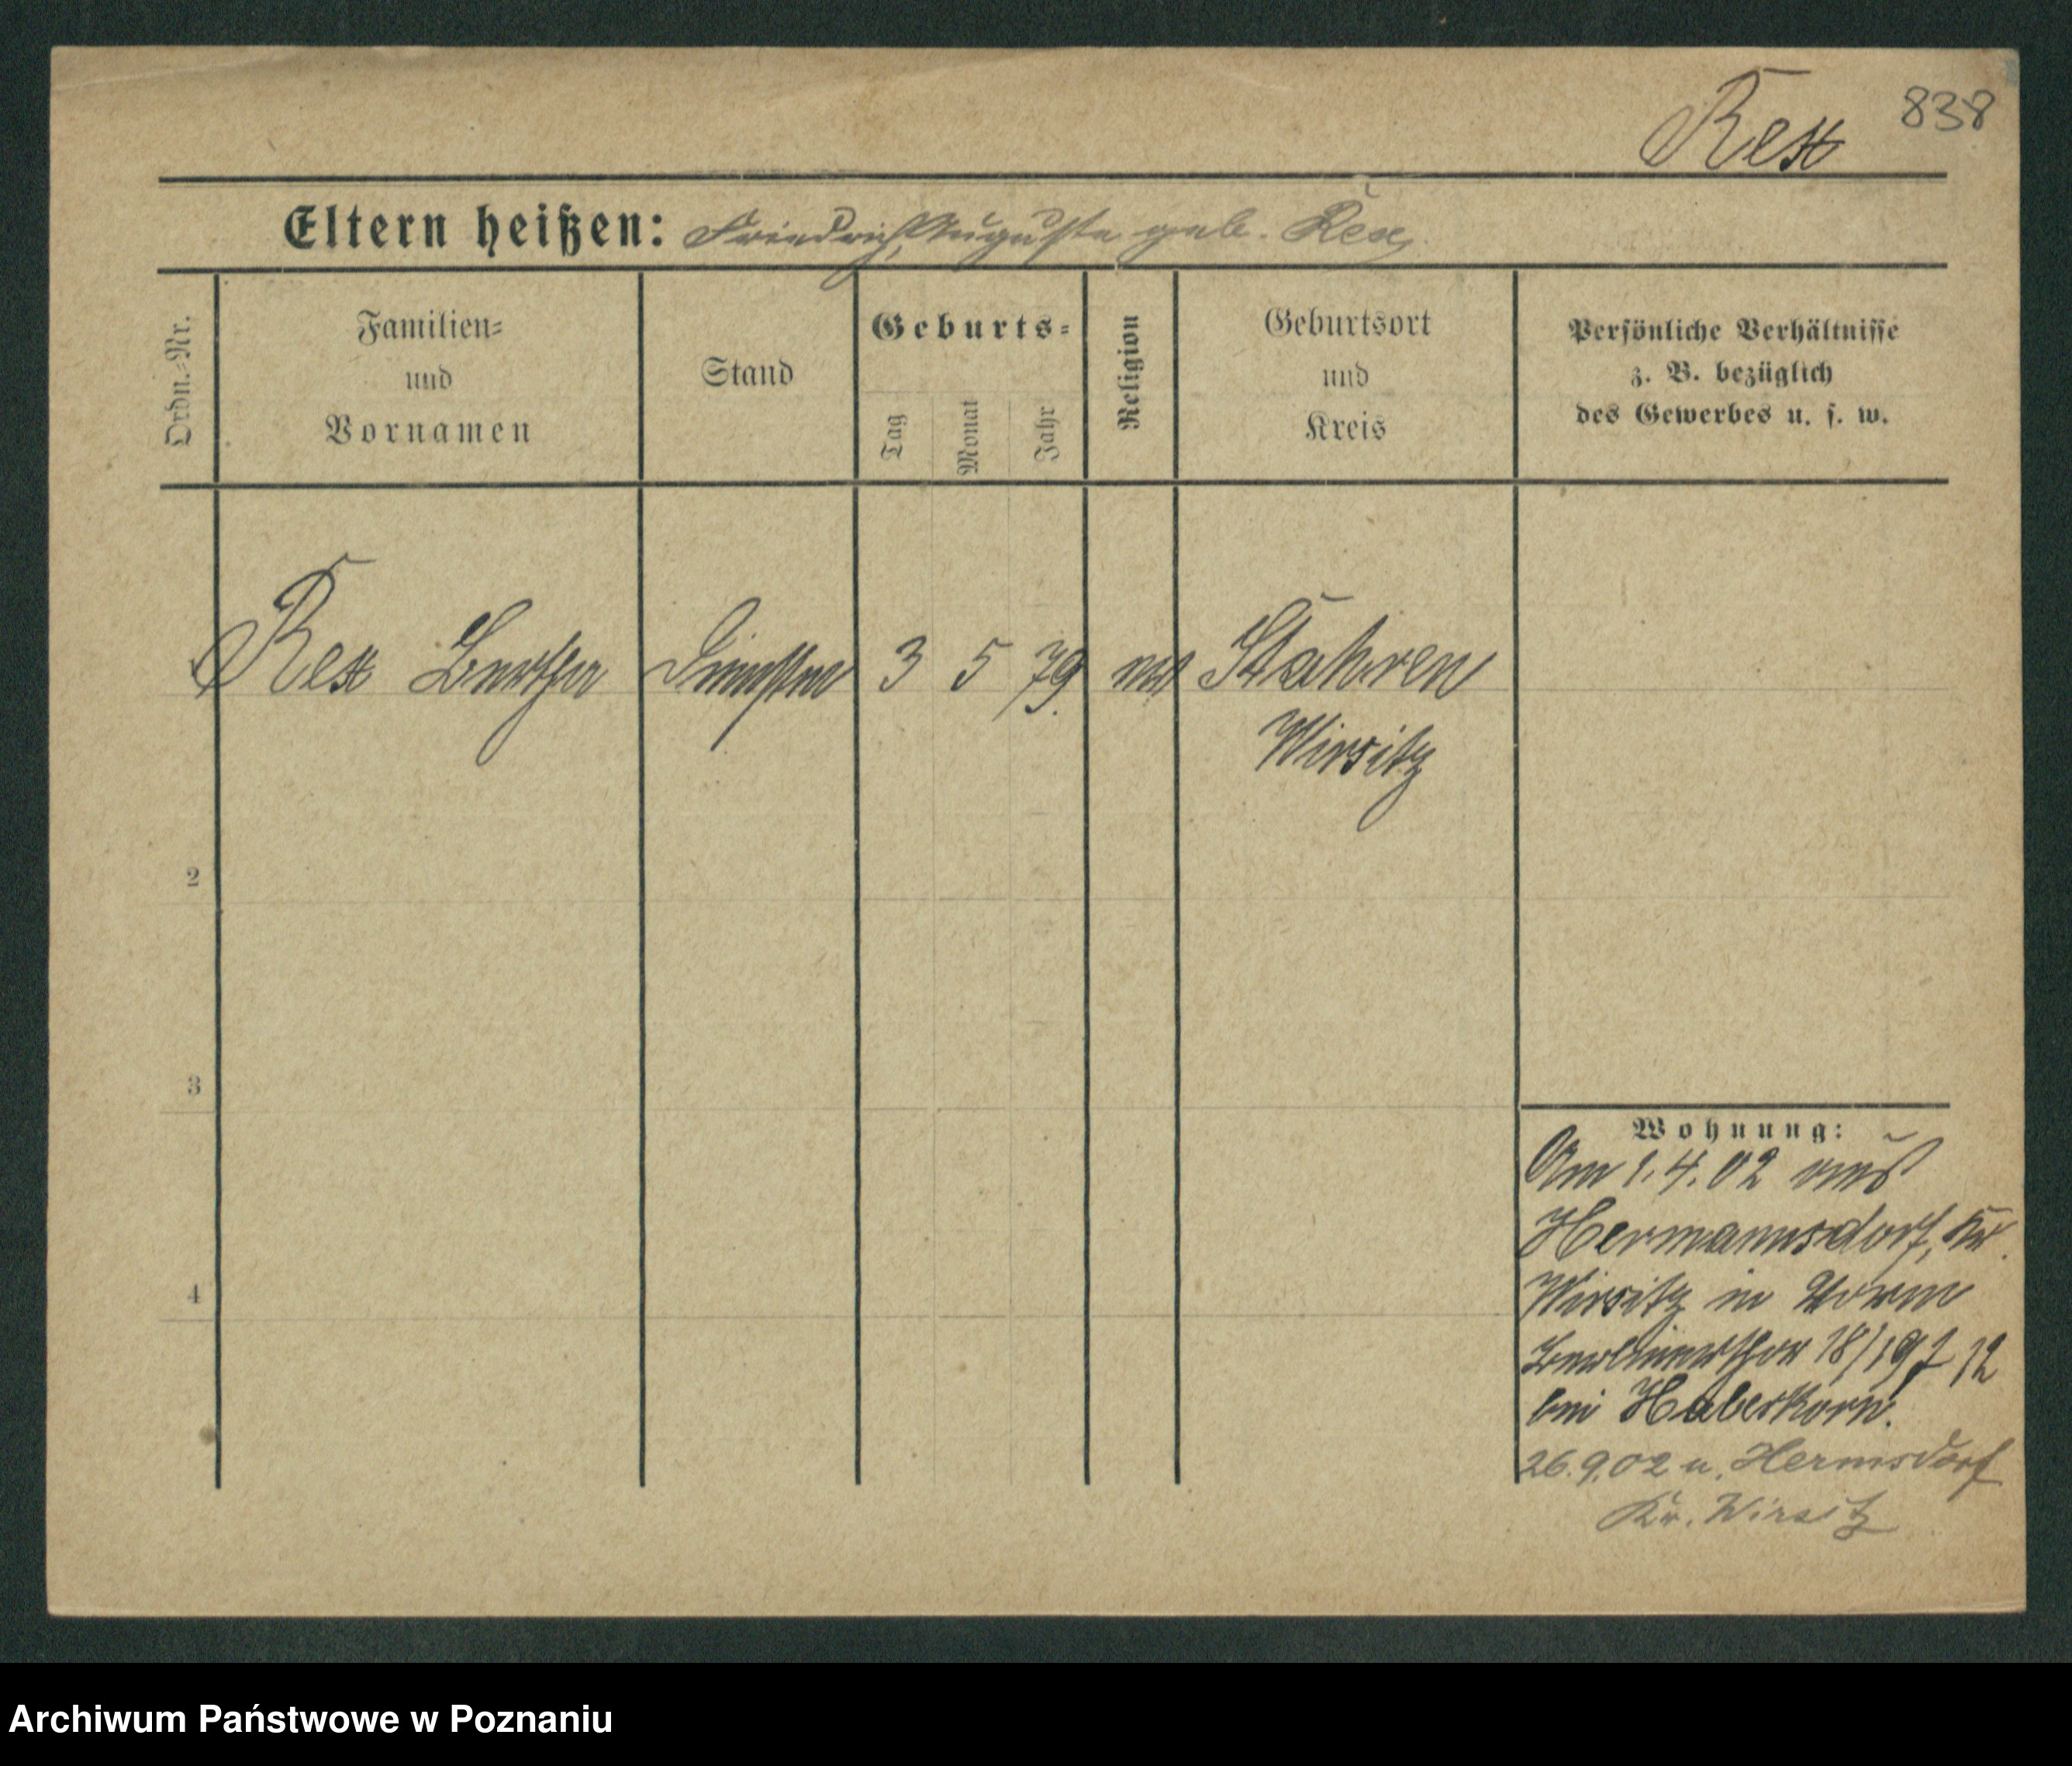 838
Rex
Eltern heißen: Friedrich, Auguste geb. Rex
Ordn.-Nr.
Familien-
und
Vornamen
Stand
Geburts-
Tag
Monat
Jahr
Religion
Geburtsort
und
Kreis
Persönliche Verhältnisse
z. B. bezüglich
des Gewerbes u. s. w.
Rex Bertha 3 5 79 Stahren
Wirsitz
2
3
4
Wohnung:
Am 1.4.02 aus
Hermannsdorf, Kr.
Wirsitz in
Berlinerthor 18/19 12
bei Haberkorn.
26.9.02 n. Hermsdorf
Kr. Wirsitz
Archiwum Państwowe w Poznaniu